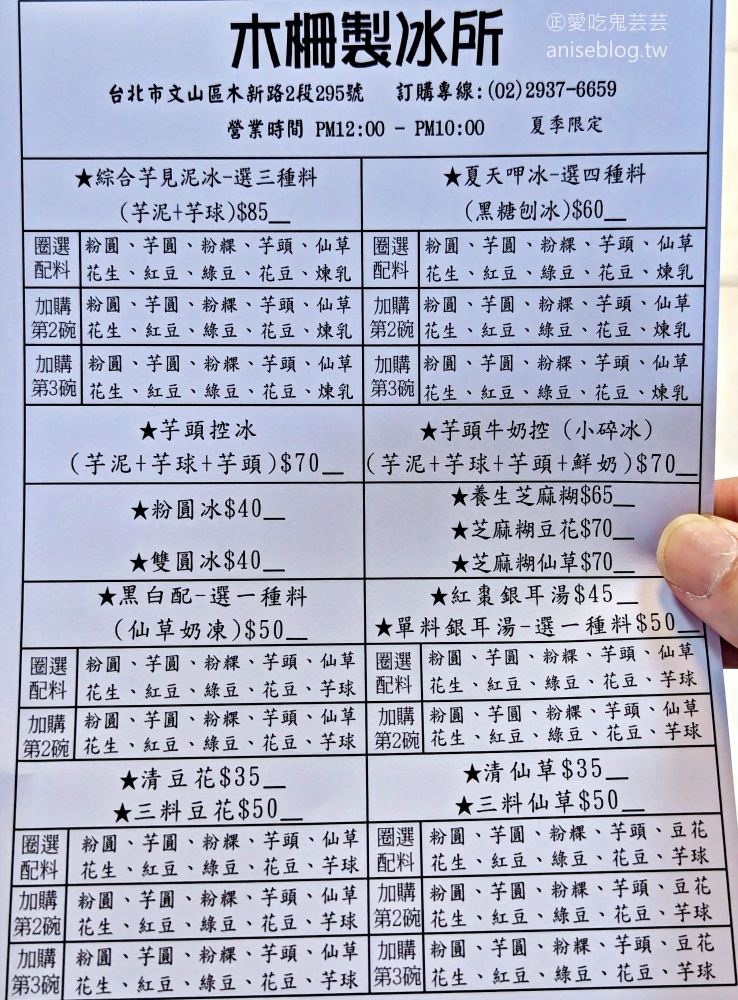 木柵製冰所
正愛吃鬼芸芸
aniseblog.tw
台北市文山區木新路2段295號 訂購專線:(02)2937-6659
營業時間 PM12:00 - PM10:00 夏季限定
★綜合芋見泥冰-選三種料
(芋泥+芋球)$85__
圈選配料
粉圓、芋圓、粉粿、芋頭、仙草
花生、紅豆、綠豆、花豆、煉乳
加購第2碗
粉圓、芋圓、粉粿、芋頭、仙草
花生、紅豆、綠豆、花豆、煉乳
加購第3碗
粉圓、芋圓、粉粿、芋頭、仙草
花生、紅豆、綠豆、花豆、煉乳
★夏天呷冰-選四種料
(黑糖刨冰)$60__
圈選配料
粉圓、芋圓、粉粿、芋頭、仙草
花生、紅豆、綠豆、花豆、煉乳
加購第2碗
粉圓、芋圓、粉粿、芋頭、仙草
花生、紅豆、綠豆、花豆、煉乳
加購第3碗
粉圓、芋圓、粉粿、芋頭、仙草
花生、紅豆、綠豆、花豆、煉乳
★芋頭控冰
(芋泥+芋球+芋頭)$70__
★芋頭牛奶控(小碎冰)
(芋泥+芋球+芋頭+鮮奶)$70__
★粉圓冰$40__
★雙圓冰$40__
★養生芝麻糊$65__
★芝麻糊豆花$70__
★芝麻糊仙草$70__
★黑白配-選一種料
(仙草奶凍)$50__
圈選配料
粉圓、芋圓、粉粿、芋頭、仙草
花生、紅豆、綠豆、花豆、芋球
加購第2碗
粉圓、芋圓、粉粿、芋頭、仙草
花生、紅豆、綠豆、花豆、芋球
★紅棗銀耳湯$45__
★單料銀耳湯-選一種料$50__
圈選配料
粉圓、芋圓、粉粿、芋頭、仙草
花生、紅豆、綠豆、花豆、芋球
加購第2碗
粉圓、芋圓、粉粿、芋頭、仙草
花生、紅豆、綠豆、花豆、芋球
★清豆花$35__
★三料豆花$50__
圈選配料
粉圓、芋圓、粉粿、芋頭、仙草
花生、紅豆、綠豆、花豆、芋球
加購第2碗
粉圓、芋圓、粉粿、芋頭、仙草
花生、紅豆、綠豆、花豆、芋球
加購第3碗
粉圓、芋圓、粉粿、芋頭、仙草
花生、紅豆、綠豆、花豆、芋球
★清仙草$35__
★三料仙草$50__
圈選配料
粉圓、芋圓、粉粿、芋頭、豆花
花生、紅豆、綠豆、花豆、芋球
加購第2碗
粉圓、芋圓、粉粿、芋頭、豆花
花生、紅豆、綠豆、花豆、芋球
加購第3碗
粉圓、芋圓、粉粿、芋頭、豆花
花生、紅豆、綠豆、花豆、芋球